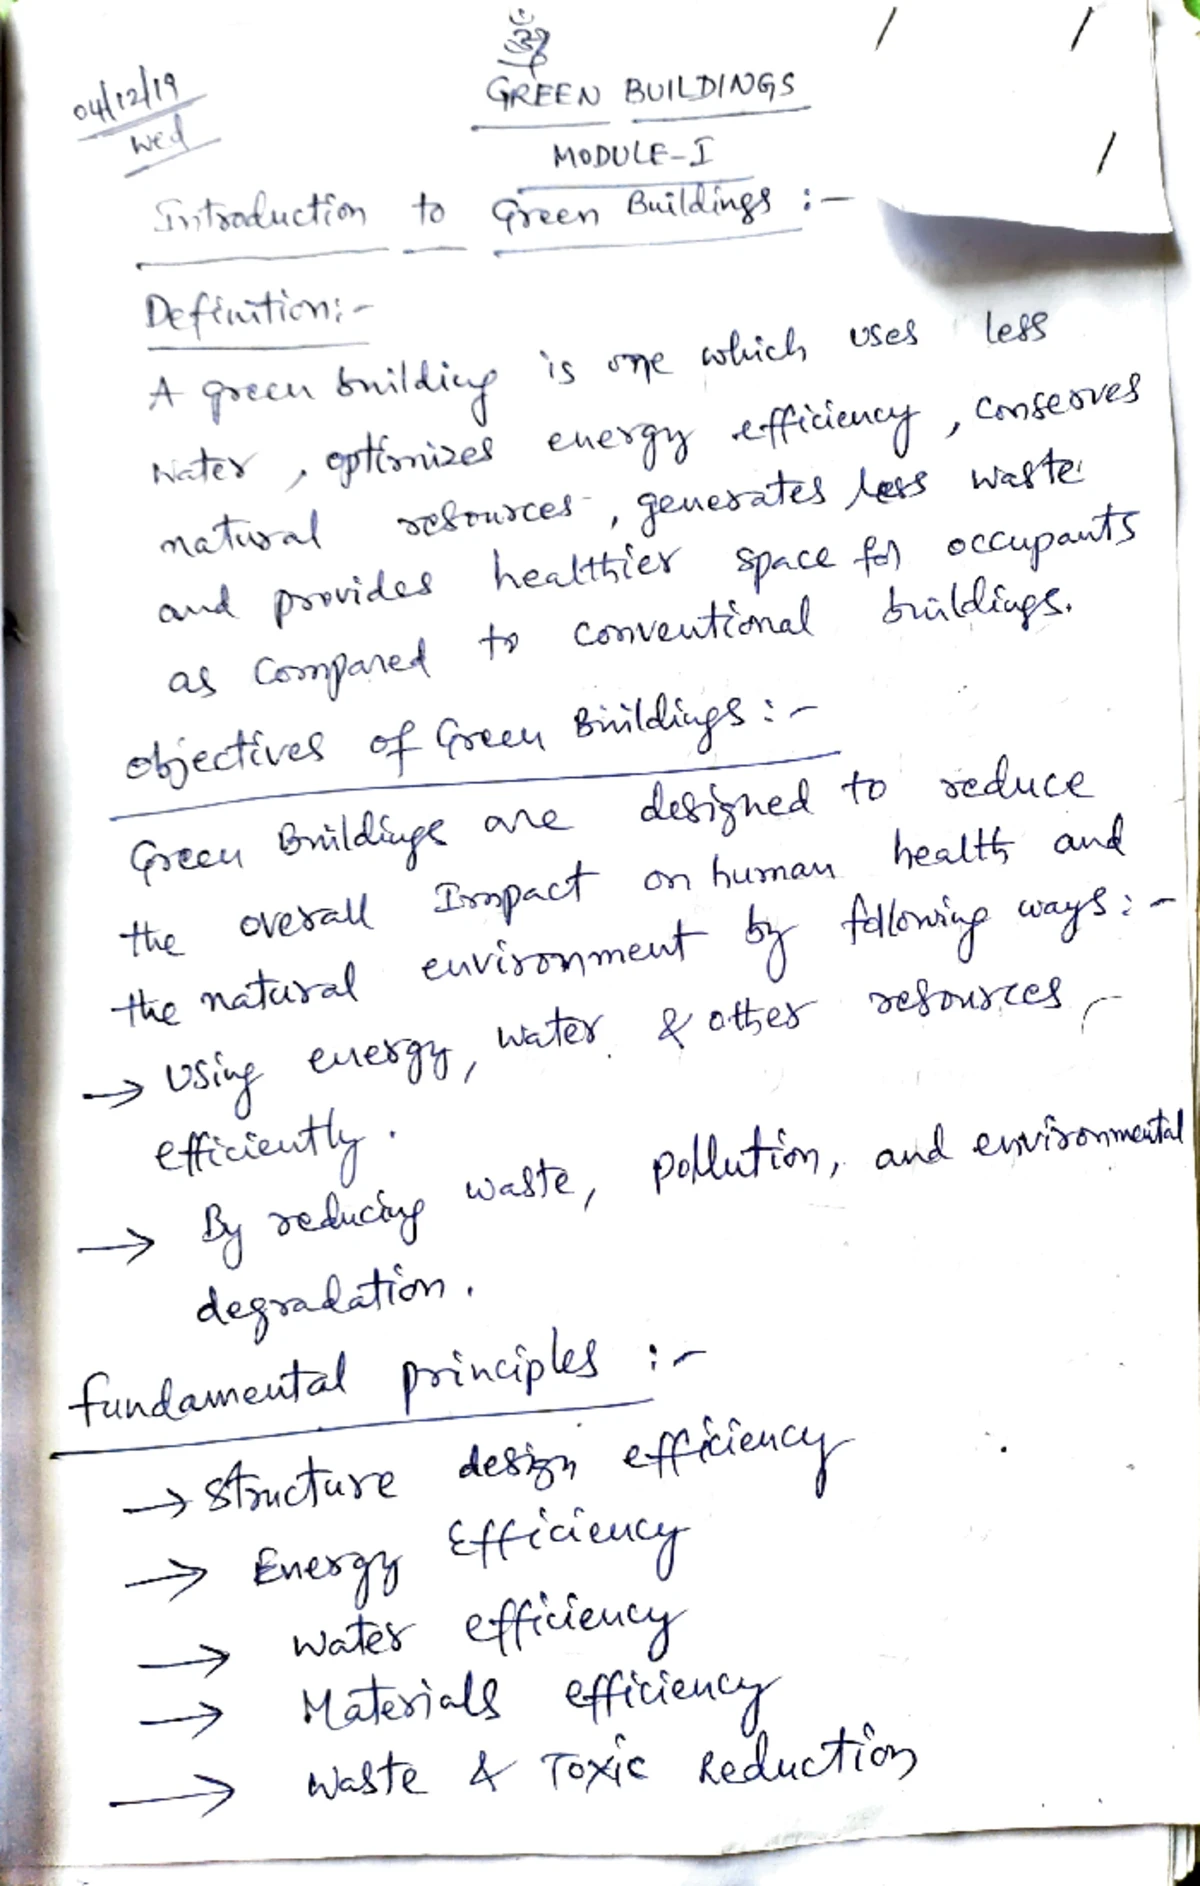 ૐ
04/12/19
Wed
GREEN BUILDINGS
MODULE-I
Introduction to Green Buildings :-
Definition:-
A green building is one which uses less
water, optimizes energy efficiency, conserves
natural resources, generates less waste
and provides healthier space for occupants
as compared to conventional buildings.
objectives of Green Buildings :-
Green Buildings are designed to reduce
the overall Impact on human health and
the natural environment by following ways :-
→ Using energy, water & other resources
efficiently.
→ By reducing waste, pollution, and environmental
degradation.
fundamental principles :-
→ Structure design efficiency
→ Energy Efficiency
→ Water efficiency
→ Materials efficiency
→ Waste & Toxic Reduction